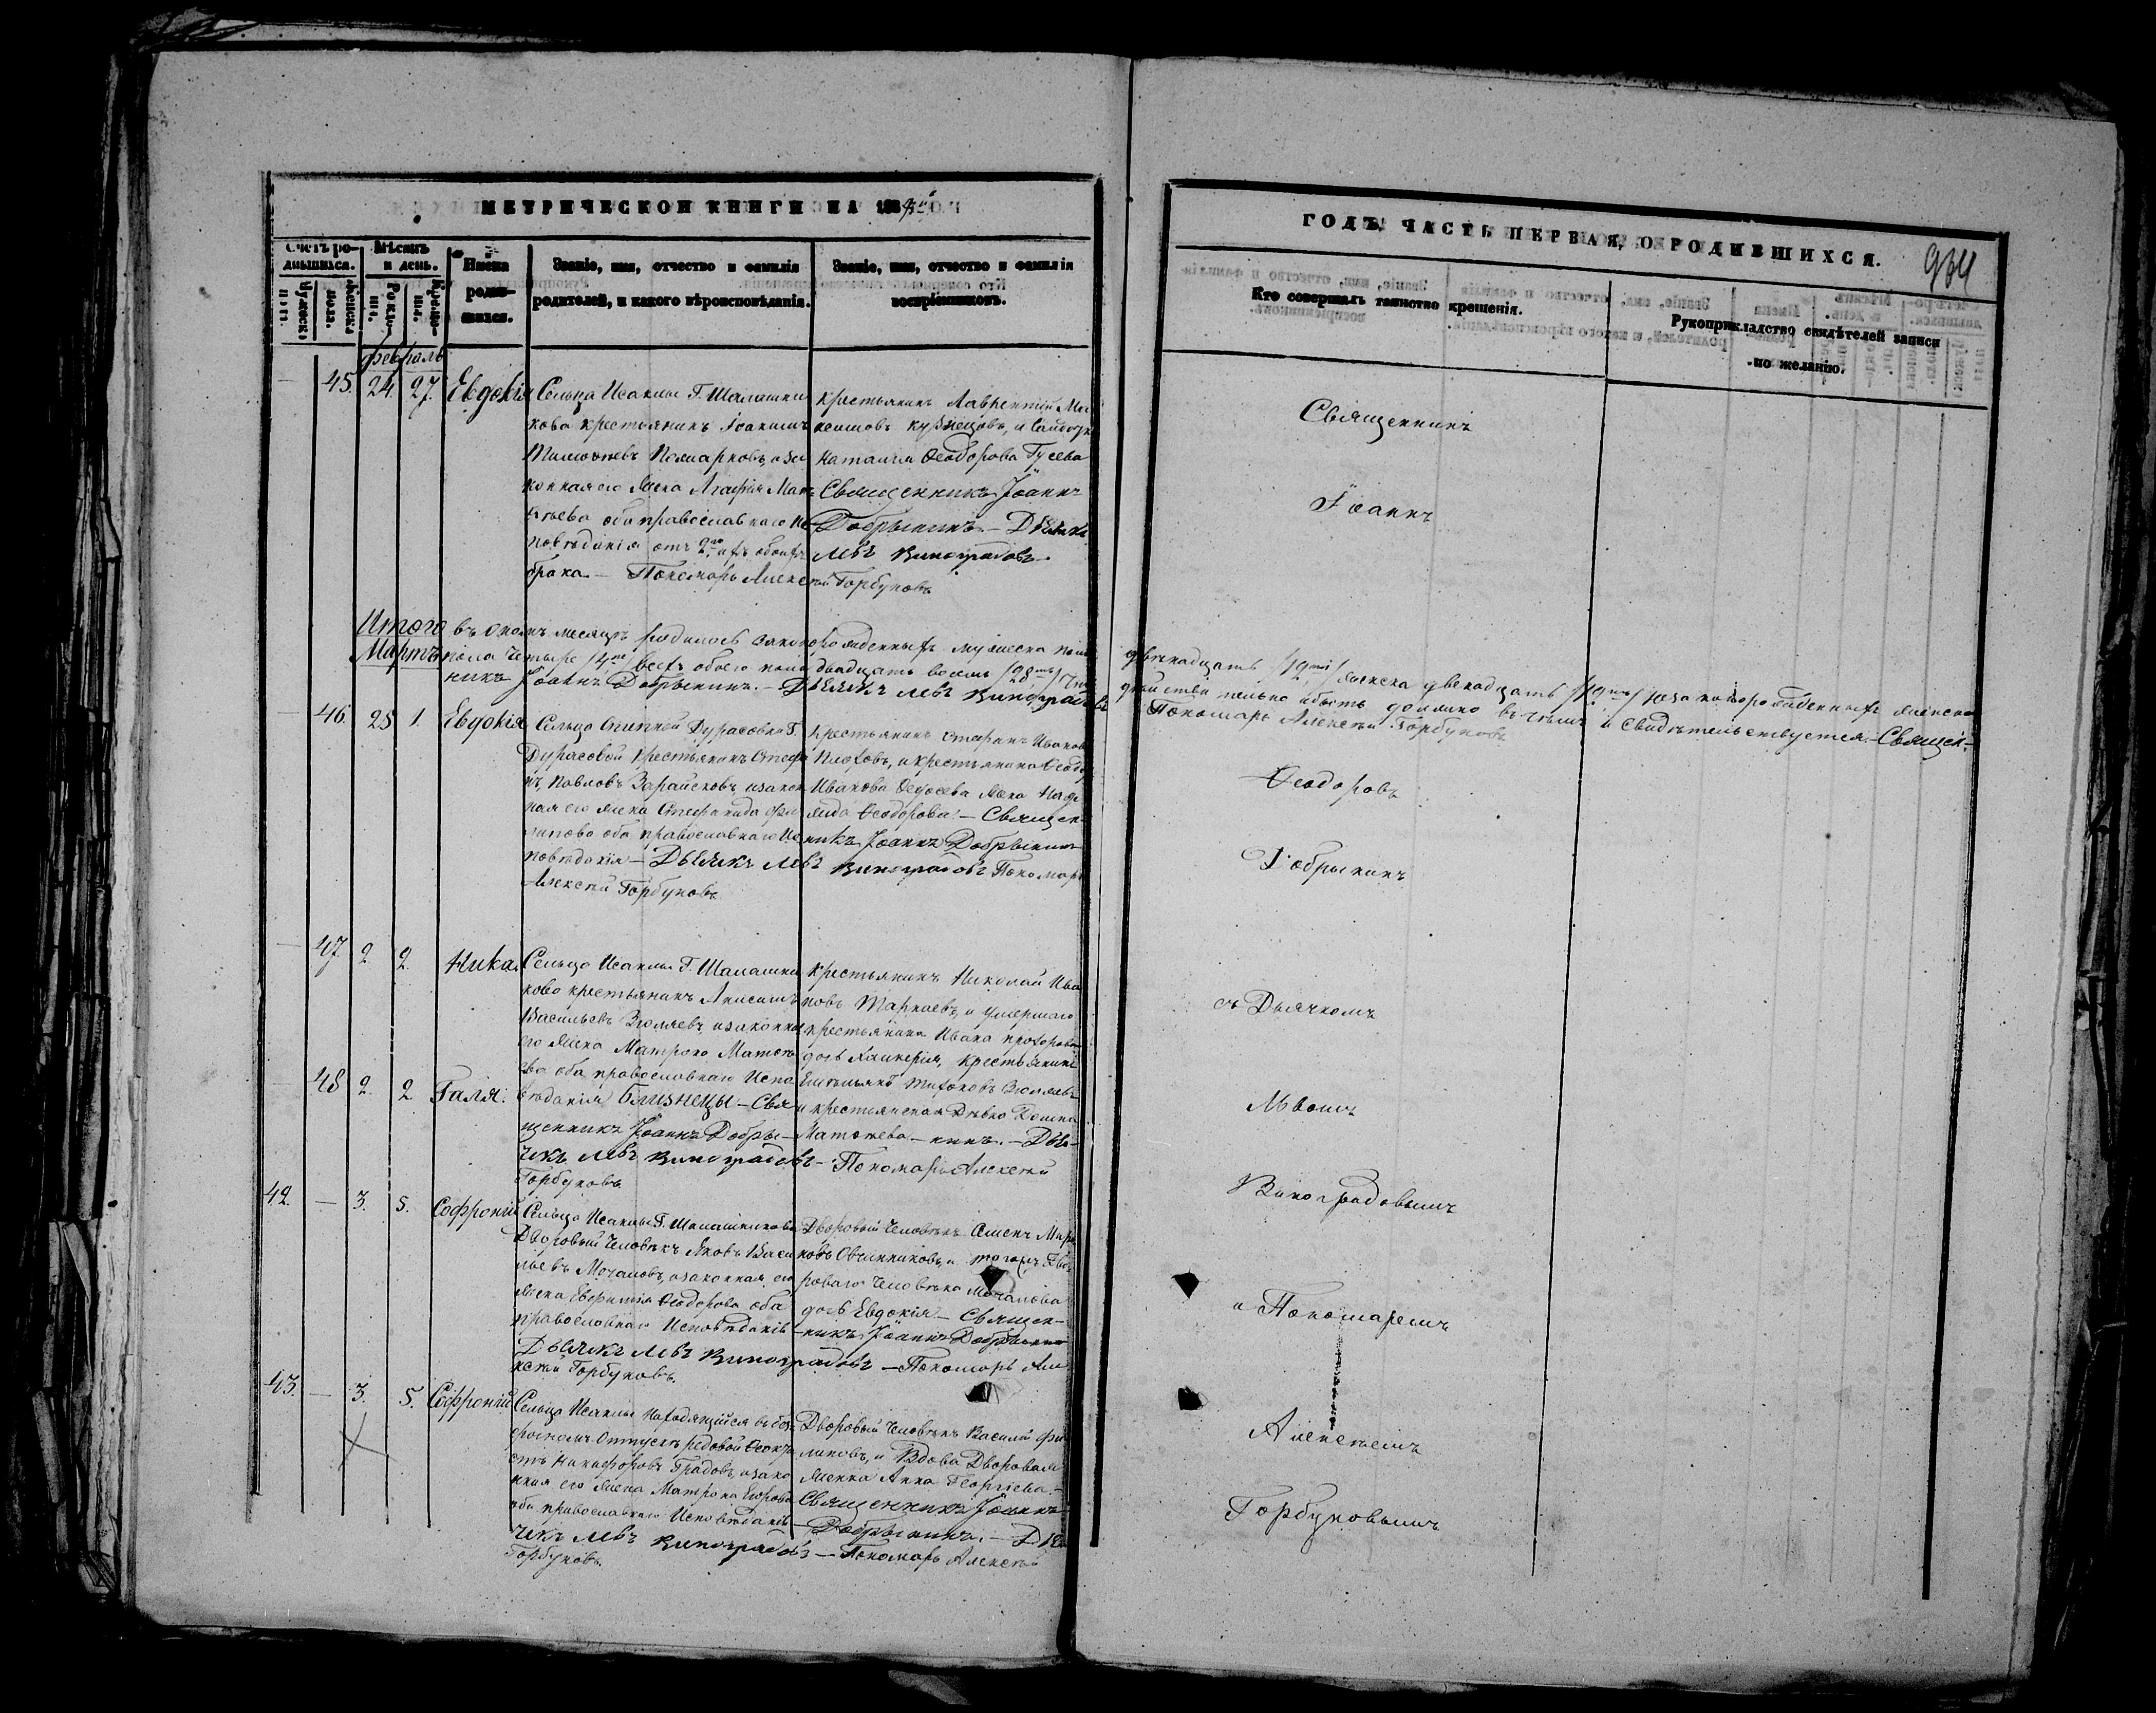 МЕТРИЧЕСКОЙ КНИГИ НА 184
Счетъ ро-
дившихся.
Мѣсяцъ
и день.
Имена
родив-
шихся.
Званіе, имя, отчество и фамилія
родителей, и какого вѣроисповѣданія.
Званіе, имя, отчество и фамилія
воспріемниковъ.
Мужеска
полъ.
Женска
полъ.
Рожде-
ніе.
Креще-
ніе.
февраль
— 45. 24. 27. Евдокія
Сельца Исаклы Г. Шалашни
кова крестьянинъ Іоакимъ
Тимоѳеевъ и за
конная его жена Агафія Мат
ѳѣева оба православнаго Ис
повѣданія отъ 2го обоихъ
брака — Пономарь Алексѣй Горбуновъ
крестьянинъ Лаврентій Ма
ксимовъ Кузнецовъ, и
Наталія Ѳеодорова Гусева
Священникъ Іоаннъ
Добрынинъ. — Дьячекъ
Левъ Виноградовъ.
Итого въ ономъ месяцѣ родилось законорожденныхъ мужеска пола
Мартъ
пола четыре /4ре/ всехъ обоего пола двадцать восемь /28мь/
никъ Іоаннъ Добрынинъ. — Дьячекъ Левъ Виноградовъ
— 46. 28 1. Евдокія
Сельца Степной Дурасовки Г.
Дурасовой Крестьянинъ Стефа
нъ Павловъ Зарайсковъ, и закон
ная его жена Стефанида Фи
липова оба православнаго Ис
повѣданія — Дьячекъ Левъ Виноградовъ Пономарь
Алексѣй Горбуновъ
Крестьянинъ Стефанъ Иванов
и крестьянина Ѳеодо
Иванова Ѳедосеева жена Наде
жда Ѳеодорова. — Священ
никъ Іоаннъ Добрынинъ
— 47. 2. 2. Ника.
48 2. 2 Галя.
Сельца Исаклы Г. Шалашни
кова крестьянинъ Анисимъ
Васильевъ Зюляевъ, и законна
его жена Матрона Матвѣ
ева оба православнаго Испо
вѣданія близнецы — Свя
щенникъ Іоаннъ Добры—
чекъ Левъ Виноградовъ — Пономарь Алексѣй
Горбуновъ
Крестьянинъ Николай Ива
новъ и умершаго
крестьянина Ивана Прохорова
дочь Гликерія, крестьянинъ
Емельянъ Тихоновъ Зюляевъ
и крестьянская Дѣвка Домна
Матвѣева — нинъ. — Дья-
42. — 3. 5. Софроній
Сельца Исаклы Г. Шалашникова
Дворовый Человѣкъ Яковъ Васи
льевъ Мочаловъ, и законная его
жена Евфимія Ѳеодорова оба
православнаго Исповѣданія
Дьячекъ Левъ Виноградовъ — Пономарь Але
ксѣй Горбуновъ.
Дворовый Человѣкъ Семенъ Миро
новъ Овчинниковъ, и тогожъ Дво
роваго человѣка Мочалова
дочь Евдокія — Священ—
никъ Іоаннъ Добрынинъ
43. — 3. 5. Софроній
Сельца Исаклы находящійся въ без
срочномъ отпускѣ редовой Ѳеокти
стъ Никифоровъ Градовъ, и зако
нная его жена Матрона Егорова
оба православнаго Исповѣданія
чекъ Левъ Виноградовъ — Пономарь Алексѣй
Горбуновъ.
Дворовый Человѣкъ Василій Фи
липовъ, и Вдова Дворовая
женка Анна Георгіева. —
Священникъ Іоаннъ
Добрынинъ. — Дья
ГОДЪ, ЧАСТЬ ПЕРВАЯ, О РОДИВШИХСЯ.
934
Кто совершалъ таинство крещенія.
Рукоприкладство свидѣтелей записи
по желанію.
Священникъ
Іоаннъ
двенадцать /12ть/ женска двенадцать /12ть/ незаконорожденныхъ женска
дѣйствительно въ чемъ и свидѣтельствуется. Священ-
Пономарь Алексѣй Горбуновъ
Ѳеодоровъ
Добрынинъ
съ Дьячкомъ
Львомъ
Виноградовымъ
и Пономаремъ
Алексѣемъ
Горбуновымъ